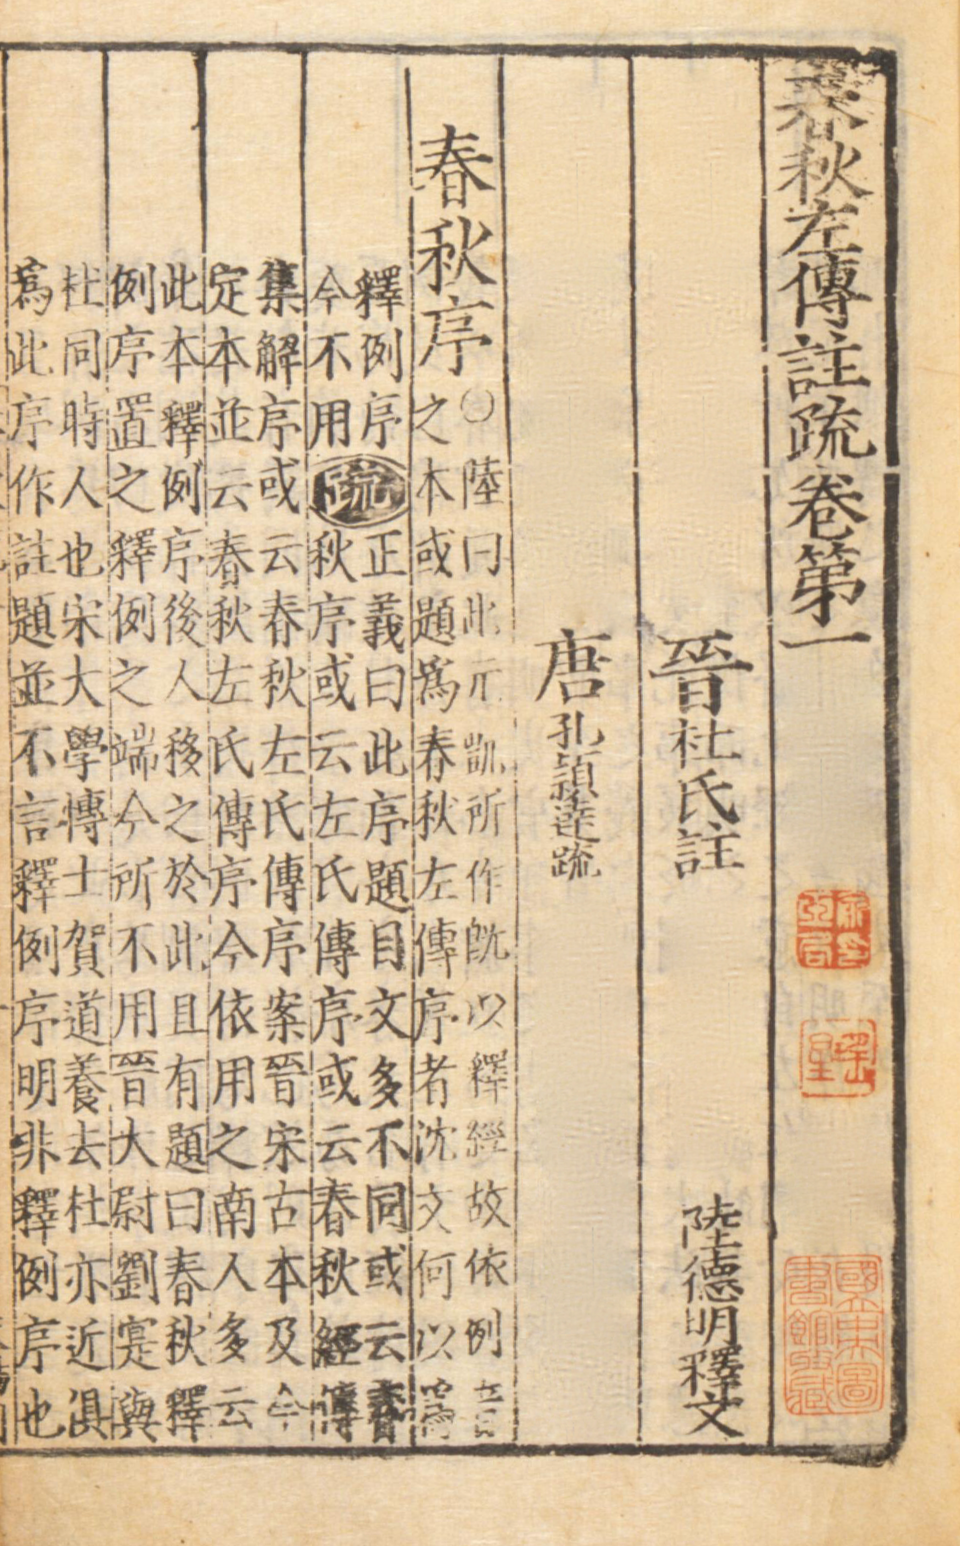 春秋左傳註疏卷第一
晉杜氏註
陸德明釋文
唐孔頴達疏
春秋序
○陸曰此元凱所作旣以釋經故依例音
之本或題爲春秋左傳序者沈文何以爲
釋例序
今不用
疏
正義曰此序題目文多不同或云春
秋序或云左氏傳序或云春秋經傳
集解序或云春秋左氏傳序案晉宋古本及今
定本並云春秋左氏傳序今依用之南人多云
此本釋例序後人移之於此且有題曰春秋釋
例序置之釋例之端今所不用晉大尉劉寔與
杜同時人也宋大學愽士賀道養去杜亦近俱
爲此序作註題並不言釋例序明非釋例序也